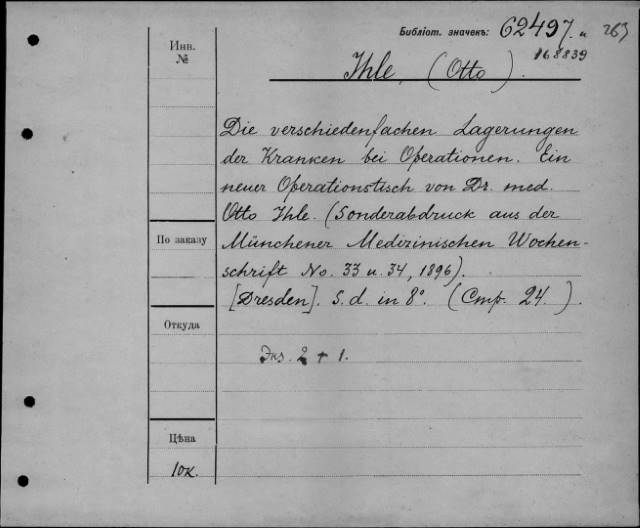 Библіот. значекъ: 62497. и 263
168839
Инв.
№
Ihle, (Otto).
Die verschiedenfachen Lagerungen
der Kranken bei Operationen. Ein
neuer Operationstisch von Dr. med.
Otto Ihle. (Sonderabdruck aus der
По заказу
Münchener Medizinischen Wochen-
schrift No. 33 u. 34, 1896).
[Dresden]. S. d. in 8°. (Стр. 24.).
Откуда
Экз. 2 + 1.
Цѣна
10к.